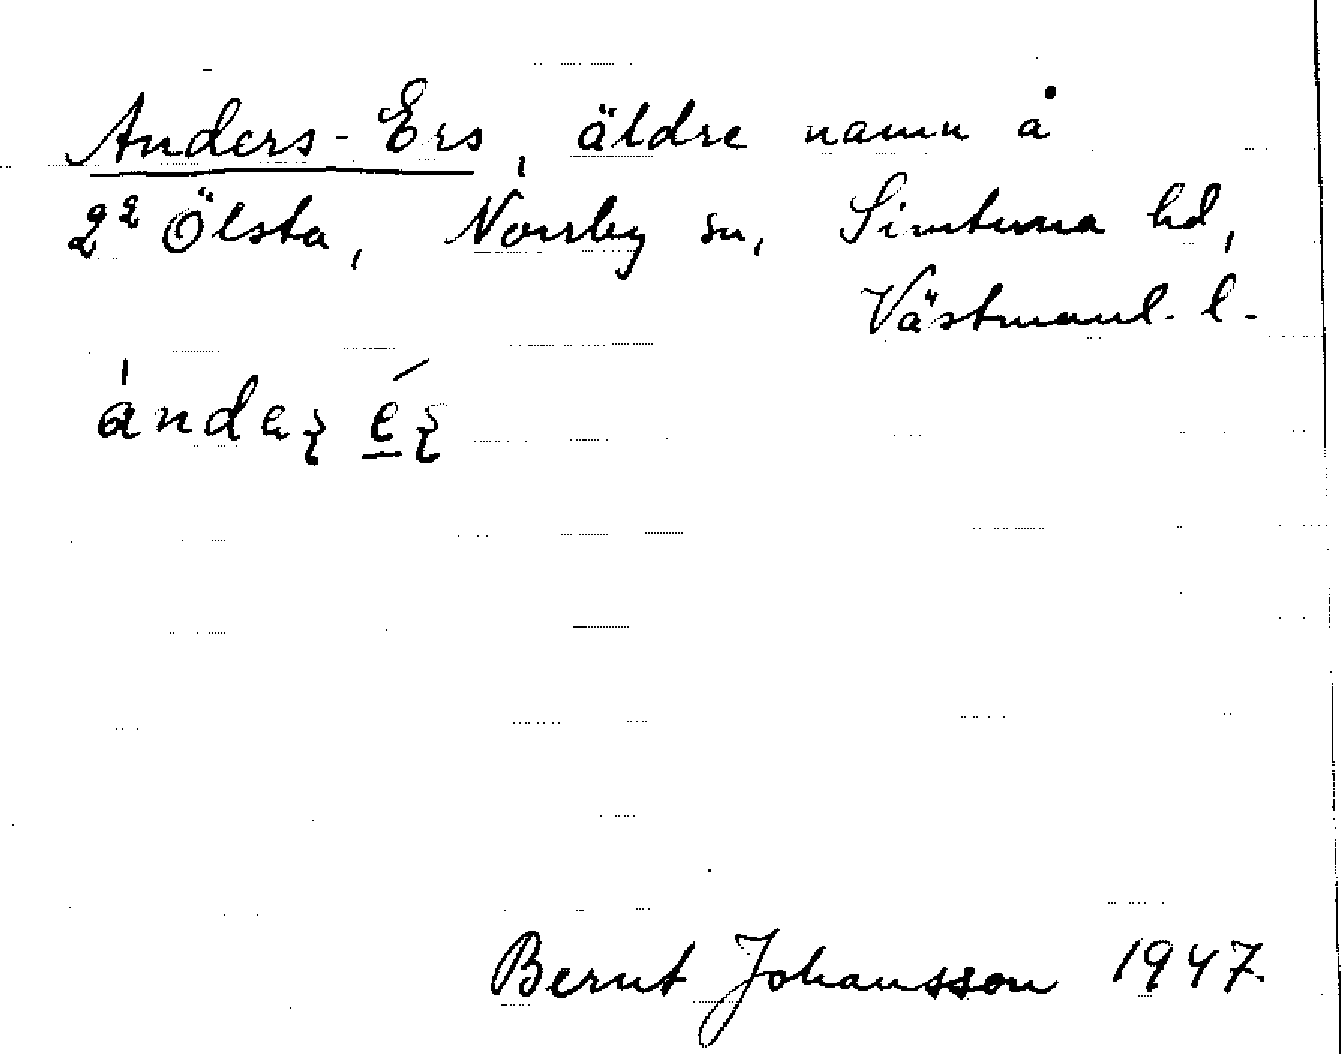 Anders-Ers, äldre namn å
2² Ölsta, Norrby sn, Simtuna hd,
Västmanl. l.
Bernt Johansson 1947.